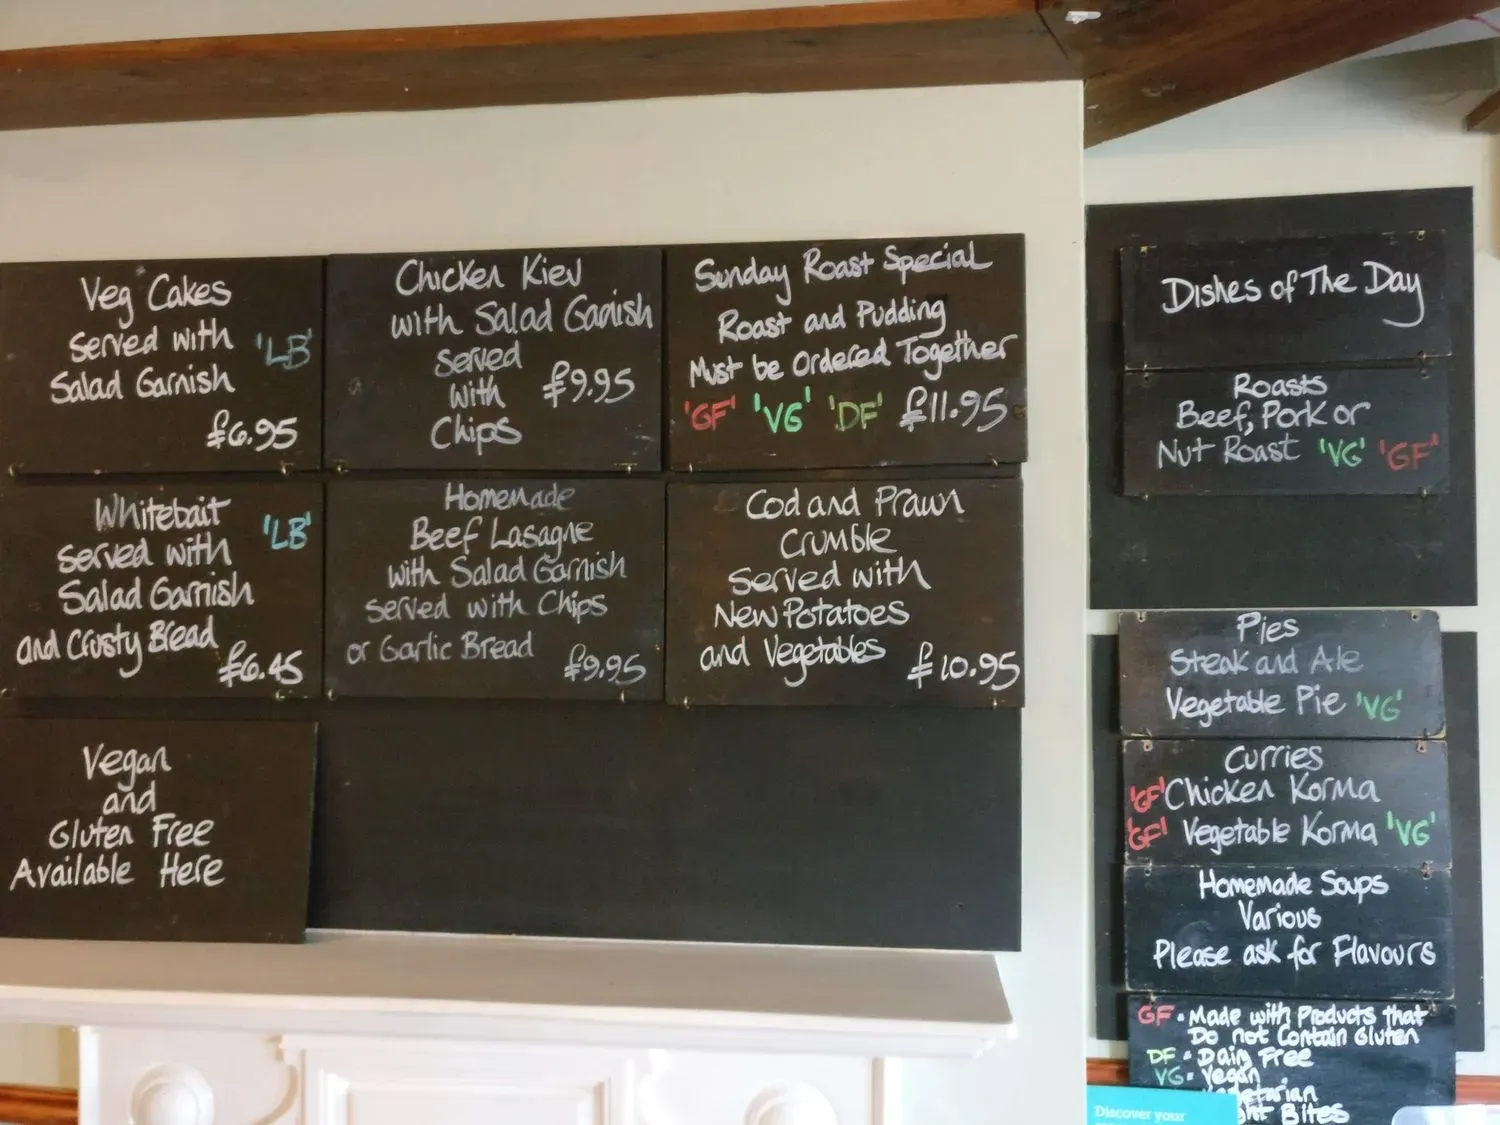 Veg Cakes
Served with
Salad Garnish
'LB'
£6.95
Chicken Kiev
with Salad Garnish
served
with
Chips
£9.95
Sunday Roast Special
Roast and Pudding
Must be Ordered Together
'GF' 'VG' 'DF' £11.95
Whitebait
served with
Salad Garnish
and Crusty Bread
'LB'
£6.45
Homemade
Beef Lasagne
with Salad Garnish
served with Chips
or Garlic Bread
£9.95
Cod and Prawn
Crumble
Served with
New Potatoes
and Vegetables
£10.95
Vegan
and
Gluten Free
Available Here
Dishes of The Day
Roasts
Beef, Pork or
Nut Roast 'VG' 'GF'
Pies
Steak and Ale
Vegetable Pie 'VG'
Curries
'GF' Chicken Korma
'GF' Vegetable Korma 'VG'
Homemade Soups
Various
Please ask for Flavours
GF = Made with Products that
Do not Contain Gluten
DF = Dairy Free
VG = Vegan
Bites
Discover your